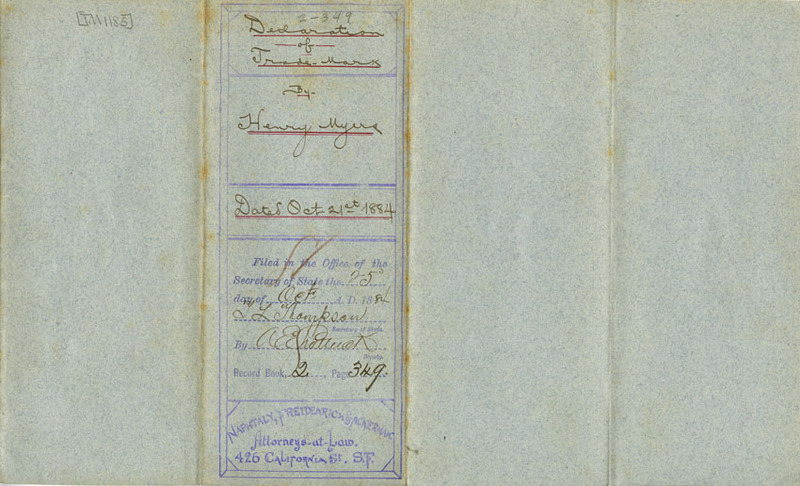 [TM1185]
2-349
Declaration
of
Trade-Mark
By
Henry Myers
Dated Oct 21st 1884
Filed in the Office of the
Secretary of State the 25
day of Oct A. D. 1884
T L Thompson
Secretary of State.
By
Deputy.
Record Book, 2, Page 349.
NAPHTALY, FREIDENRICH & ACKERMAN
Attorneys-at-Law.
426 CALIFORNIA St. S.F.